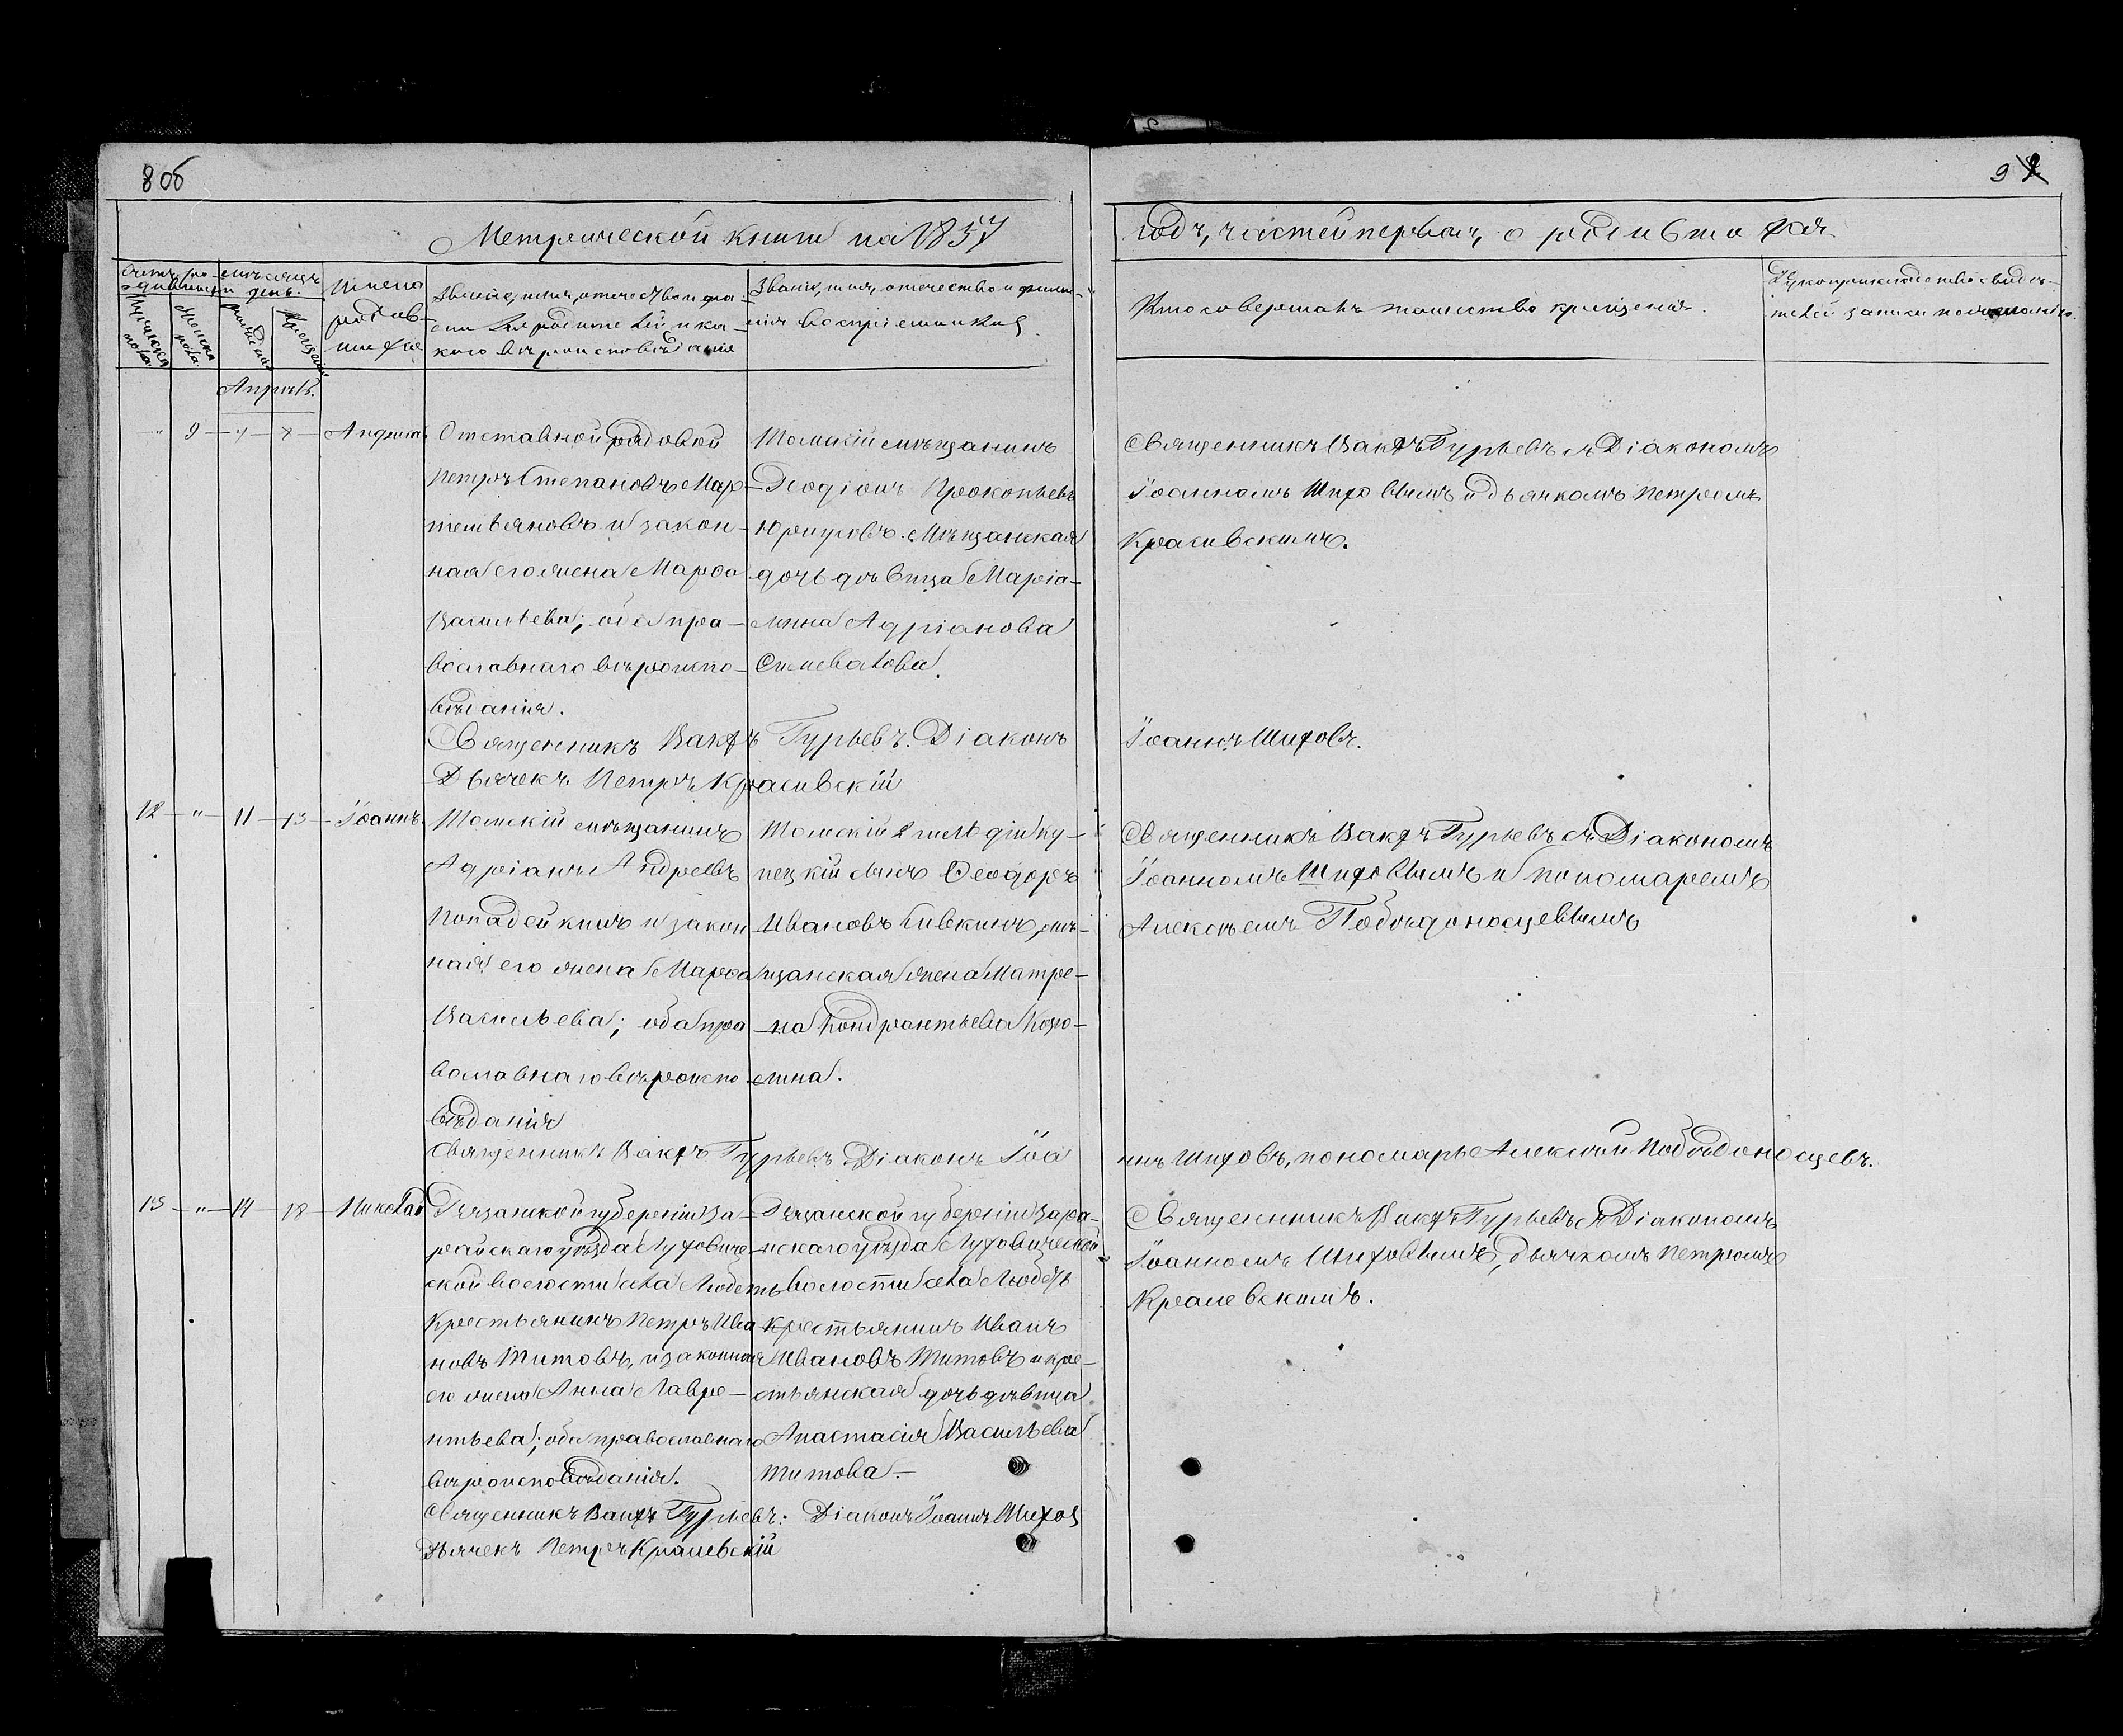 8 об
9
Метрической книги на 1857
годъ, части первой, о родившихся
Счетъ родившихся
мѣсяцъ и день.
Имена родившихся
Званіе, имя, отчество и фамилія родителей, и какого вѣроисповѣданія
Званіе, имя, отчество и фамилія воспріемниковъ
Кто совершалъ таинство крещенія.
Рукоприкладство свидѣтелей записи по желанію.
Мужеска пола.
Женска пола.
Рожденія
Крещенія
Апрѣль.
" 9 7 Отставной рядовой
Петръ Степановъ Мар-
темьяновъ и закон-
ная его жена Марѳа
Васильева; оба пра-
вославнаго вѣроиспо-
вѣданія.
Томскій мѣщанинъ
Прокопьевъ
Мѣщанская
дочь дѣвица Марія-
мна Адріанова
Священникъ Вакхъ Гурьевъ съ Діакономъ
Іоанномъ Шиховымъ и дьячкомъ Петромъ
Красивскимъ.
Священникъ Вакхъ Гурьевъ. Діаконъ Іоаннъ Шиховъ.
Дьячекъ Петръ Красивскій
12 " 11 13 Іоаннъ.
Томскій мѣщанинъ
Адріанъ Андреевъ
Попадейкинъ и закон
ная его жена Марѳа
Васильева; оба пра
вославнаго вѣроиспо
вѣданія
Томскій 2 гильдіи ку-
пецкій сынъ Ѳеодоръ
Ивановъ Пивкинъ, мѣ-
щанская жена Матре-
на Кондратьева
Священникъ Вакхъ Гурьевъ съ Діакономъ
Іоанномъ Шиховымъ и пономаремъ
Алексѣемъ Побѣдоносцевымъ
Священникъ Вакхъ Гурьевъ Діаконъ Іоа
ннъ Шиховъ, пономарь Алексѣй Побѣдоносцевъ.
13 " 14 18 Николай
Рязанской губерніи За-
райскаго уѣзда Луховиче-
ской волости села Любечь
Крестьянинъ Петръ Ива
новъ Титовъ, и законная
его жена Анна Лавре-
нтьева; оба православнаго
вѣроисповѣданія.
Рязанской губерніи Зара-
йскаго уѣзда Луховической
волости села Любечь
крестьянинъ Иванъ
Ивановъ Титовъ и кре-
стьянская дочь дѣвица
Анастасія Васильева
Титова.
Священникъ Вакхъ Гурьевъ съ Діакономъ
Іоанномъ Шиховымъ, дьячкомъ Петромъ
Красивскимъ.
Священникъ Вакхъ Гурьевъ: Діаконъ Іоаннъ Шиховъ
Дьячекъ Петръ Красивскій